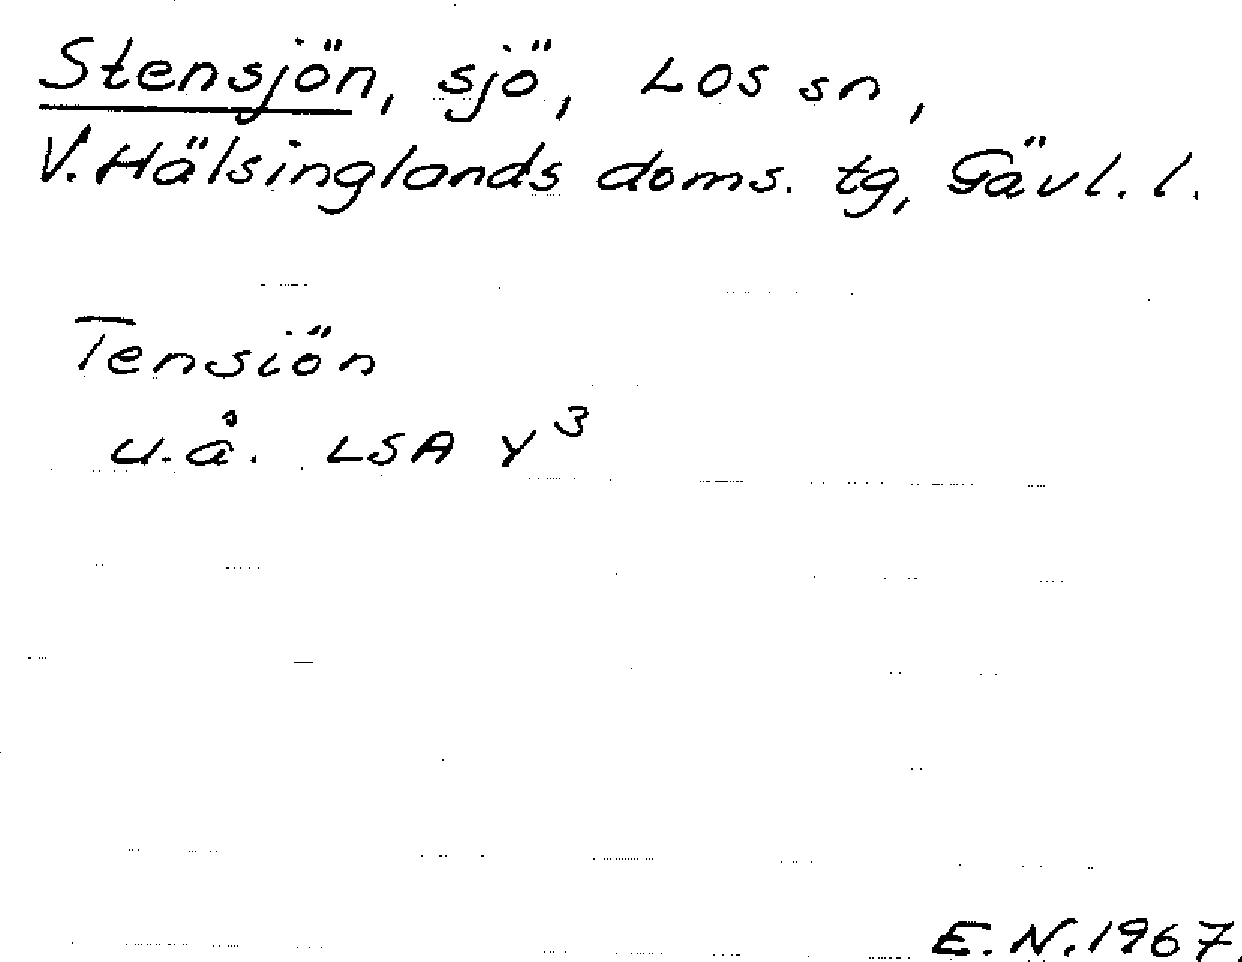 Stensjön, sjö, Los sn,
V. Hälsinglands doms. tg, Gävl. l.
Tensiön
u.å. LSA Y³
E. N. 1967.